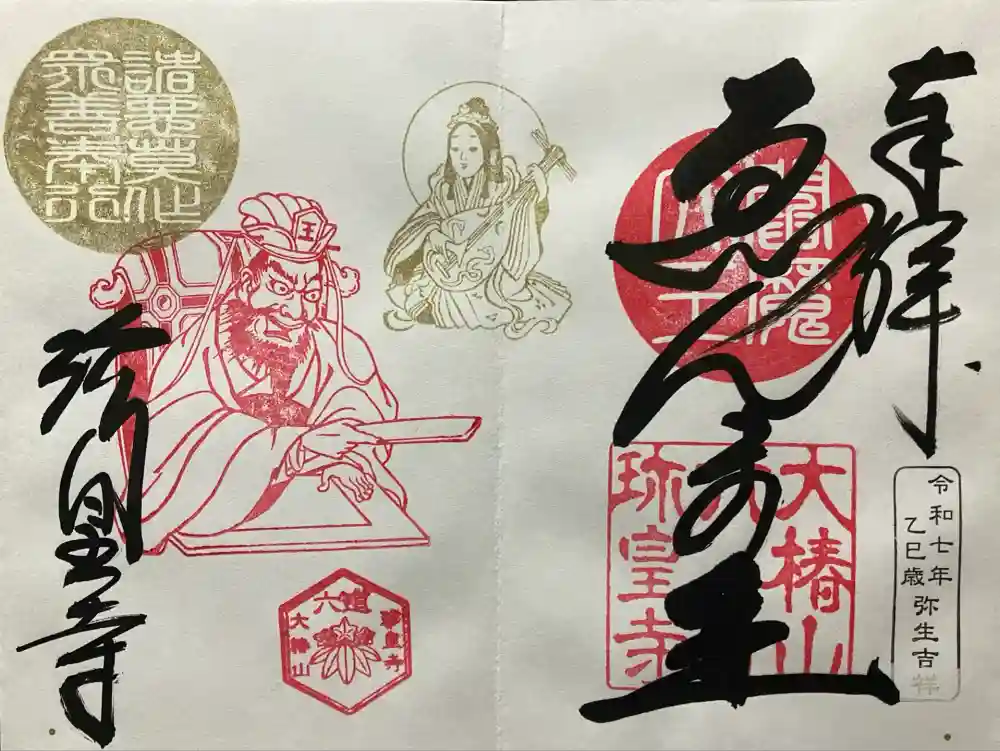 奉拝
ゑんま王
大椿山
珎皇寺
令和七年
乙巳歳 弥生吉祥
諸悪莫作
衆善奉行
王
六道
珍皇寺
大椿山
珍皇寺